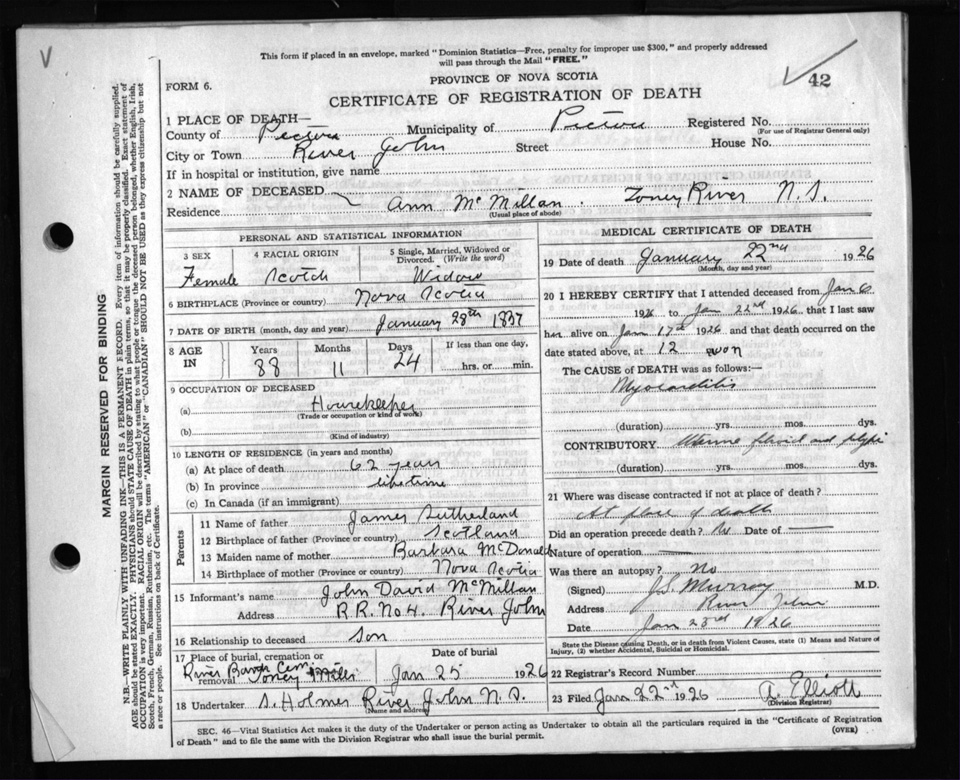 V
This form if placed in an envelope, marked "Dominion Statistics—Free, penalty for improper use $300," and properly addressed
will pass through the Mail "FREE."
PROVINCE OF NOVA SCOTIA
42
FORM 6.
CERTIFICATE OF REGISTRATION OF DEATH
1 PLACE OF DEATH—
County of Pictou Municipality of Pictou Registered No.
(For use of Registrar General only)
City or Town River John Street House No.
If in hospital or institution, give name
2 NAME OF DECEASED Ann McMillan. Toney River N.S.
Residence (Usual place of abode)
PERSONAL AND STATISTICAL INFORMATION
3 SEX 4 RACIAL ORIGIN 5 Single, Married, Widowed or Divorced. (Write the word)
Female Scotch Widow
6 BIRTHPLACE (Province or country) Nova Scotia
7 DATE OF BIRTH (month, day and year) January 28th 1837
8 AGE IN Years Months Days If less than one day,
88 11 24 hrs. or min.
9 OCCUPATION OF DECEASED
(a) Housekeeper
(Trade or occupation or kind of work)
(b)
(Kind of industry)
10 LENGTH OF RESIDENCE (in years and months)
(a) At place of death 62 years
(b) In province lifetime
(c) In Canada (if an immigrant)
Parents
11 Name of father James Sutherland
12 Birthplace of father (Province or country) Scotland
13 Maiden name of mother Barbara McDonald
14 Birthplace of mother (Province or country) Nova Scotia
15 Informant's name John David McMillan
Address R.R. No 4. River John
16 Relationship to deceased Son
17 Place of burial, cremation or removal Date of burial
River Cem Toney Jan 25 1926
18 Undertaker S. Holmes River John N.S.
(Name and address)
MEDICAL CERTIFICATE OF DEATH
19 Date of death January 22nd 1926
(Month, day and year)
20 I HEREBY CERTIFY that I attended deceased from Jan 6
1926 to Jan 22nd 1926, that I last saw
her alive on Jan 17th 1926 and that death occurred on
date stated above, at 12 noon
The CAUSE of DEATH was as follows:—
Myocarditis
(duration) yrs. mos. dys.
CONTRIBUTORY. and
(duration) yrs. mos. dys.
21 Where was disease contracted if not at place of death?
At place of death
Did an operation precede death? No Date of —
Nature of operation —
Was there an autopsy? No
(Signed) J. S. Murray M.D.
Address River John
Date Jan 23rd 1926
State the Disease causing Death, or in death from Violent Causes, state (1) Means and Nature of
Injury, (2) whether Accidental, Suicidal or Homicidal.
22 Registrar's Record Number
23 Filed Jan 22nd 1926 A. Elliott
(Division Registrar)
SEC. 46—Vital Statistics Act makes it the duty of the Undertaker or person acting as Undertaker to obtain all the particulars required in the "Certificate of Registration
of Death" and to file the same with the Division Registrar who shall issue the burial permit.
(OVER)
MARGIN RESERVED FOR BINDING
N.B.—WRITE PLAINLY WITH UNFADING INK—THIS IS A PERMANENT RECORD. Every item of information should be carefully supplied.
AGE should be stated EXACTLY. PHYSICIANS should STATE CAUSE OF DEATH in plain terms, so that it may be properly classified. Exact statement of
OCCUPATION is very important. RACIAL ORIGIN will be described by stating to what people or tongue the deceased person belonged, whether English, Irish,
Scotch, French, German, Russian, Ruthenian, etc. The terms "AMERICAN" or "CANADIAN" SHOULD NOT BE USED as they express citizenship but not
a race or people. See instructions on back of Certificate.